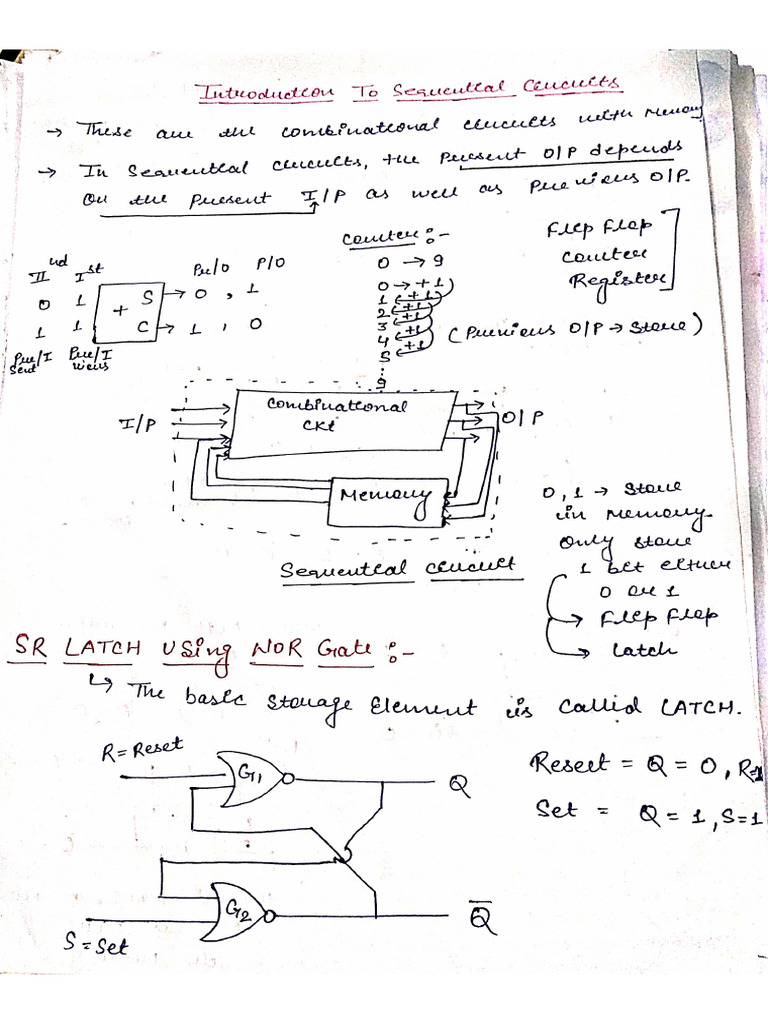 Introduction To Sequential Circuits
→ These are the combinational circuits with Memory
→ In Sequential circuits, the Present O/P depends
on the present I/P as well as Previous O/P.
Counter :-
0 → 9
0 → +1
1 +1
2 +1
3 +1
4 +1
5
⋮
9
Flip Flop
Counter
Register
(Previous O/P → Store)
IInd Ist Pre/O P/O
0 1 + S → 0 , 1
1 1 C → 1 , 0
Pre/I Pre/I
sent vious
I/P
Combinational
Ckt
O/P
Memory
Sequential circuit
0, 1 → Store
in Memory.
Only store
1 bit either
0 or 1
→ Flip Flop
→ Latch
SR LATCH Using NOR Gate :-
↳ The basic Storage Element is Callid LATCH.
R = Reset
G1
Q
G2
Q̅
S = Set
Resert = Q = 0, R=1
Set = Q = 1, S=1